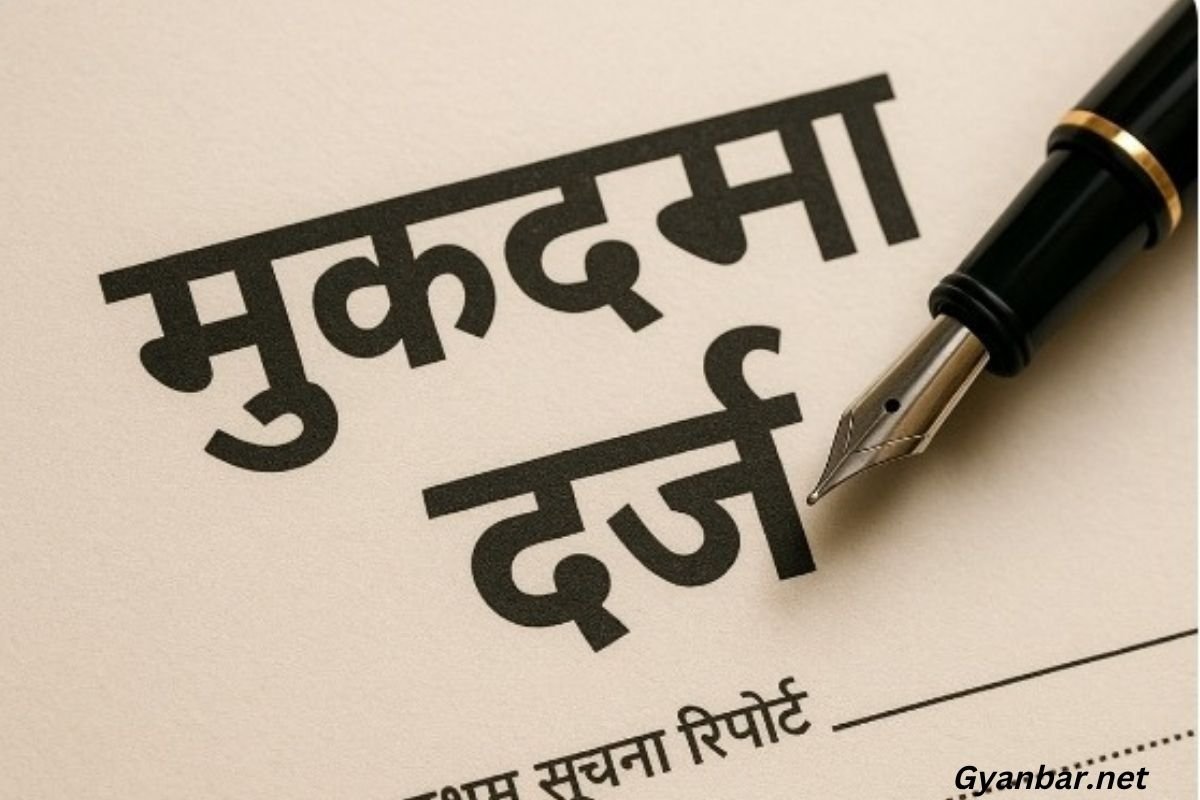 मुकदमा
दर्ज
प्रथम सूचना रिपोर्ट
Gyanbar.net